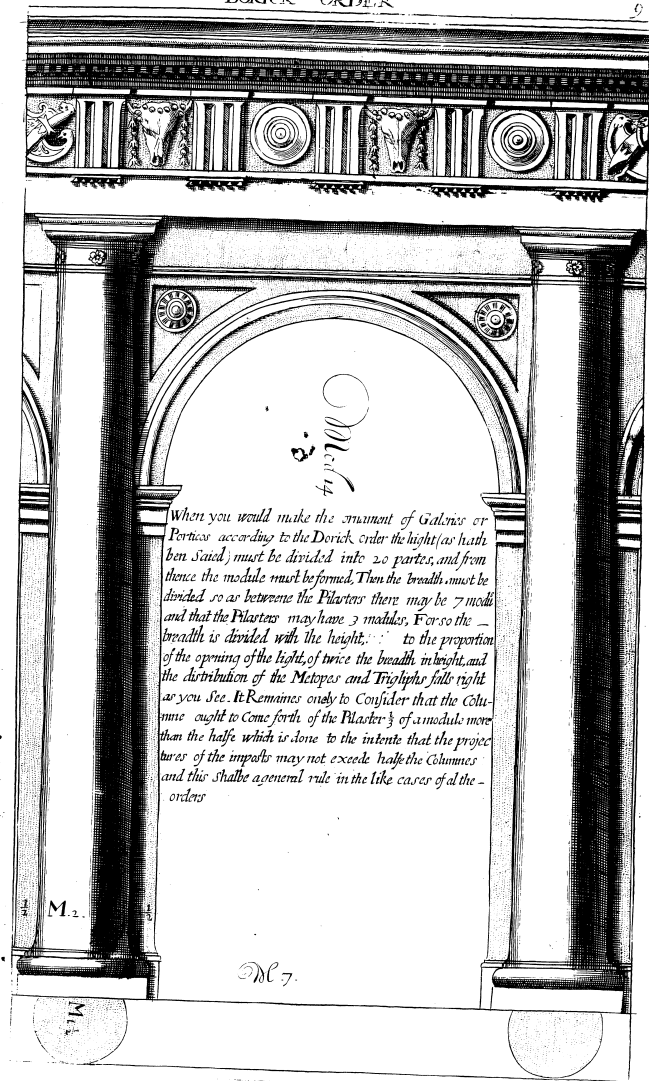 DORICK ORDER
9
Mod 14
When you would make the ornament of Galeries or
Porticos according to the Dorick order the hight (as hath
ben Saied) must be divided into 20 partes, and from
thence the module must be formed, Then the breadth must be
divided so as betweene the Pilasters there may be 7 moduli
and that the Pilasters may have 3 modules, For so the _
breadth is divided with the height, to the proportion
of the opening of the light, of twice the breadth in height, and
the distribution of the Metopes and Trigliphs falls right
as you See. It Remaines onely to Consider that the Colu-
mne ought to Come forth of the Pilaster ⅓ of a module more
than the halfe which is done to the intente that the projec
tures of the imposts may not exeede halfe the Columnes
and this Shalbe a general rule in the like cases of al the _
orders
½ M.2. ½
M.7.